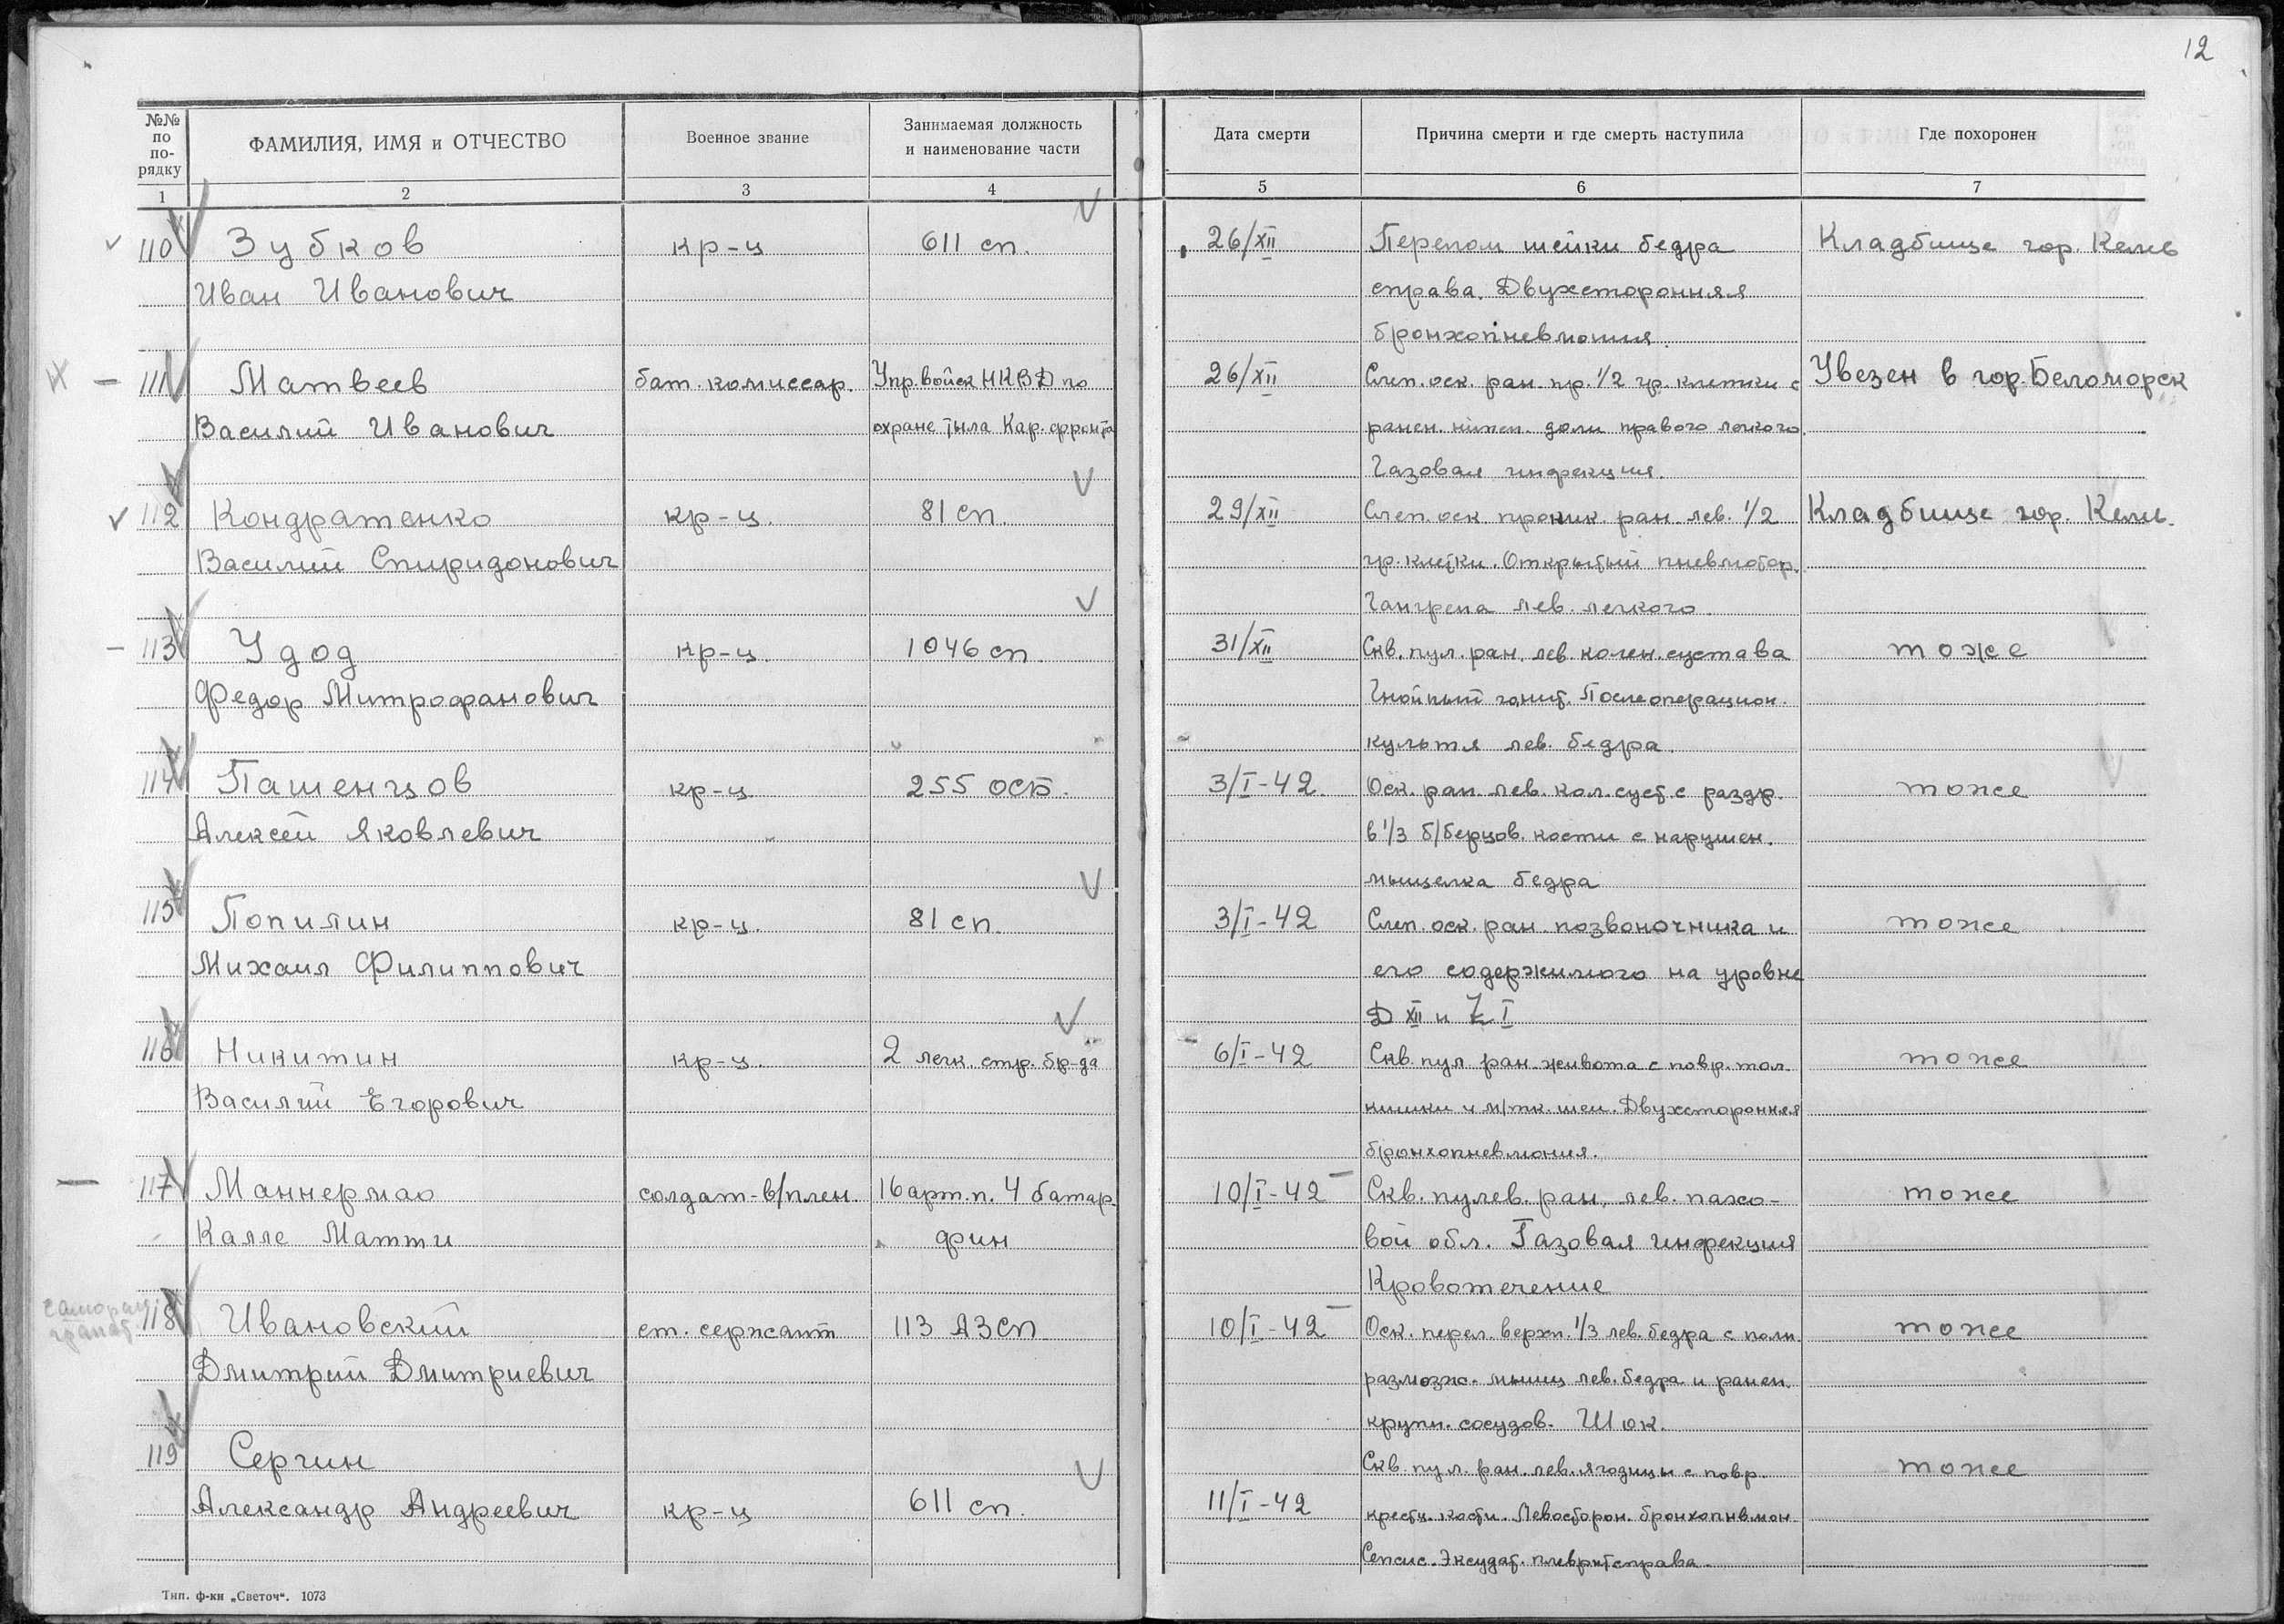 12
№№ по по-рядку
ФАМИЛИЯ, ИМЯ и ОТЧЕСТВО
Военное звание
Занимаемая должность
и наименование части
Дата смерти
Причина смерти и где смерть наступила
Где похоронен
1 2 3 4 5 6 7
110 Зубков кр-ц 611 сп. 26/XII Перелом шейки бедра Кладбище гор. Кемь
Иван Иванович справа. Двухсторонняя
бронхопневмония.
111 Матвеев бат. комиссар. Упр. войск НКВД по 26/XII Слеп. оск. ран. пр. 1/2 гр. клетки с Увезен в гор. Беломорск
Василий Иванович охране тыла Кар. фронта ранен. нижн. доли правого легкого.
Газовая инфекция.
112 Кондратенко кр-ц. 81 сп. 29/XII Слеп. оск проник. ран. лев. 1/2 Кладбище гор. Кемь.
Василий Спиридонович гр. клетки. Открытый пневмотор.
Гангрена лев. легкого.
113 Удод кр-ц. 1046 сп. 31/XII Скв. пул. ран. лев. колен. сустава тоже
Федор Митрофанович Гнойный гонит. Послеоперацион.
культя лев. бедра.
114 Пашенцов кр-ц. 255 осб. 3/I-42. Оск. ран. лев. кол. суст. с раздр. тоже
Алексей Яковлевич в 1/3 б/берцов. кости с нарушен.
мыщелка бедра
115 Попилин кр-ц. 81 сп. 3/I-42 Слеп. оск. ран. позвоночника и тоже
Михаил Филиппович его содержимого на уровне
D XII и L I
116 Никитин кр-ц. 2 легк. стр. бр-да 6/I-42 Скв. пул. ран. живота с повр. тол. тоже
Василий Егорович кишки и м/тк. шеи. Двухсторонняя
бронхопневмония.
117 Маннермао солдат-в/плен. 16 арт. п. 4 батар. 10/I-42 Скв. пулев. ран. лев. пахо- тоже
Калле Матти фин вой обл. Газовая инфекция
Кровотечение
118 Ивановский ст. сержант 113 АЗСП 10/I-42 Оск. перел. верхн. 1/3 лев. бедра с полн. тоже
Дмитрий Дмитриевич размозж. мышц лев. бедра и ранен.
крупн. сосудов. Шок.
119 Сергин Скв. пул. ран. лев. ягодицы с повр. тоже
Александр Андреевич кр-ц 611 сп. 11/I-42 крестц. кости. Левосторон. бронхопнвмон.
Сепсис. Эксудат. плеврит справа.
Тип. ф-ки „Светоч“. 1073